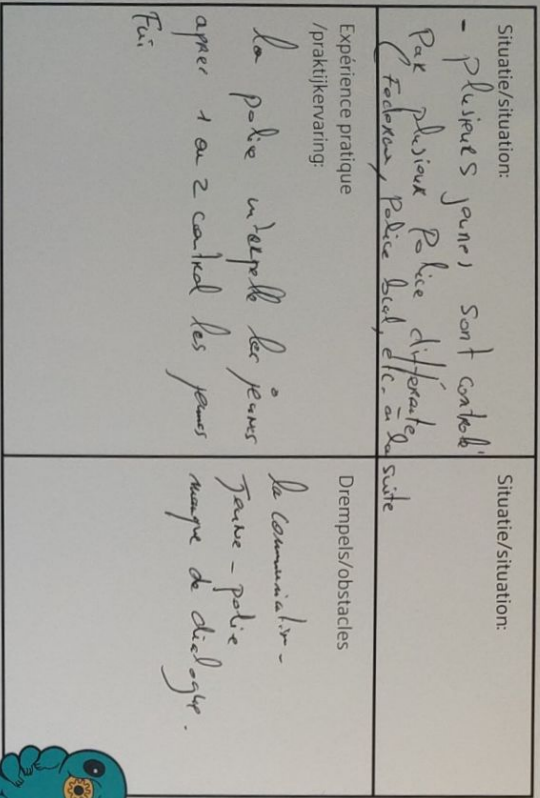 Situatie/situation:
- Plusieurs jeunes sont controlé
Par plusieur Police différente
(Federau, Police local, etc. à la suite
Situatie/situation:
Expérience pratique
/praktijkervaring:
la police interpelle les jeunes
apres 1 ou 2 control les jeunes
Fui
Drempels/obstacles
la communication -
Jeune - police
manque de dialogue.